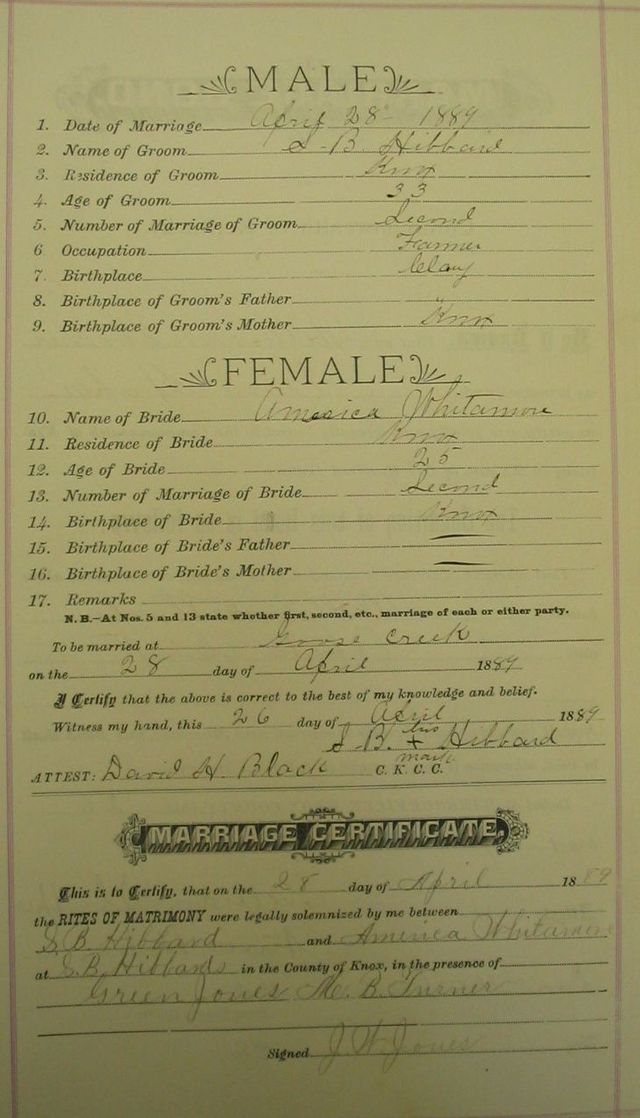 MALE
1. Date of Marriage April 28 - 1889
2. Name of Groom S. B. Hibbard
3. Residence of Groom Knox
4. Age of Groom 33
5. Number of Marriage of Groom Second
6 Occupation Farmer
7. Birthplace Clay
8. Birthplace of Groom's Father "
9. Birthplace of Groom's Mother Knox
FEMALE
10. Name of Bride America Whitamore
11. Residence of Bride Knox
12. Age of Bride 25
13. Number of Marriage of Bride Second
14. Birthplace of Bride Knox
15. Birthplace of Bride's Father —
16. Birthplace of Bride's Mother —
17. Remarks
N. B.—At Nos. 5 and 13 state whether first, second, etc., marriage of each or either party.
To be married at Goose Creek
on the 28 day of April 1889
I Certify that the above is correct to the best of my knowledge and belief.
Witness my hand, this 26 day of April 1889
S. B. his + Hibbard
mark
ATTEST: David H. Black C. K. C. C.
MARRIAGE CERTIFICATE.
This is to Certify, that on the 28 day of April 1889
the RITES OF MATRIMONY were legally solemnized by me between
S. B. Hibbard and America Whitamore
at S. B. Hibbards in the County of Knox, in the presence of
Green Jones Mc. B. Turner
Signed J. W. Jones